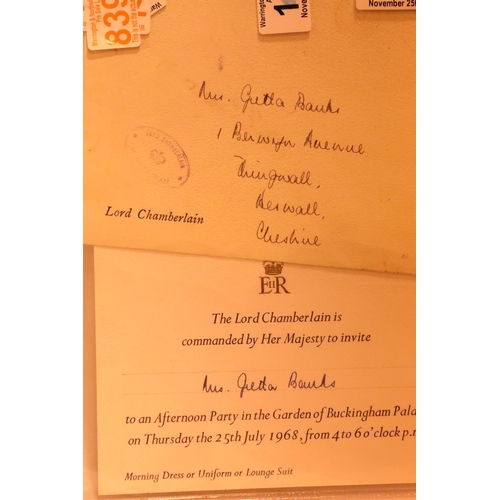 839
Warrington
November 25th
Mrs. Gretta Banks
1 Berwyn Avenue
Thingwall,
Heswall,
Cheshire
LORD CHAMBERLAIN
Lord Chamberlain
EIIR
The Lord Chamberlain is
commanded by Her Majesty to invite
Mrs. Gretta Banks
to an Afternoon Party in the Garden of Buckingham Pala
on Thursday the 25th July 1968, from 4 to 6 o'clock p.m
Morning Dress or Uniform or Lounge Suit